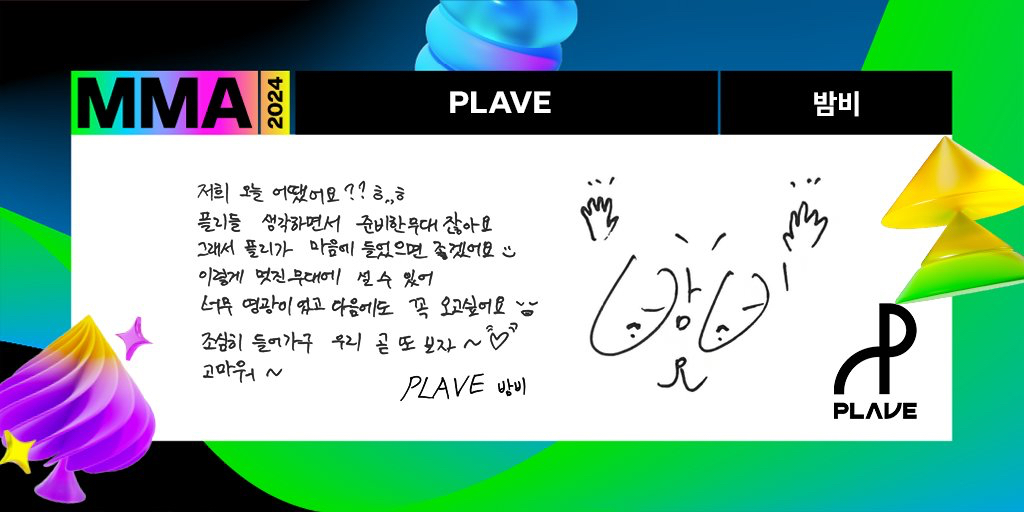 MMA 2024
PLAVE
밤비
저희 오늘 어땠어요??ㅎ,,ㅎ
플리들 생각하면서 준비한무대 잖아요
그래서 플리가 마음에 들었으면 좋겠어요
이렇게 멋진무대에 설 수 있어
너무 영광이었고 다음에도 꼭 오고싶어요
조심히 들어가구 우리 곧 또 보자~♡
고마워~
PLAVE 밤비
PLAVE